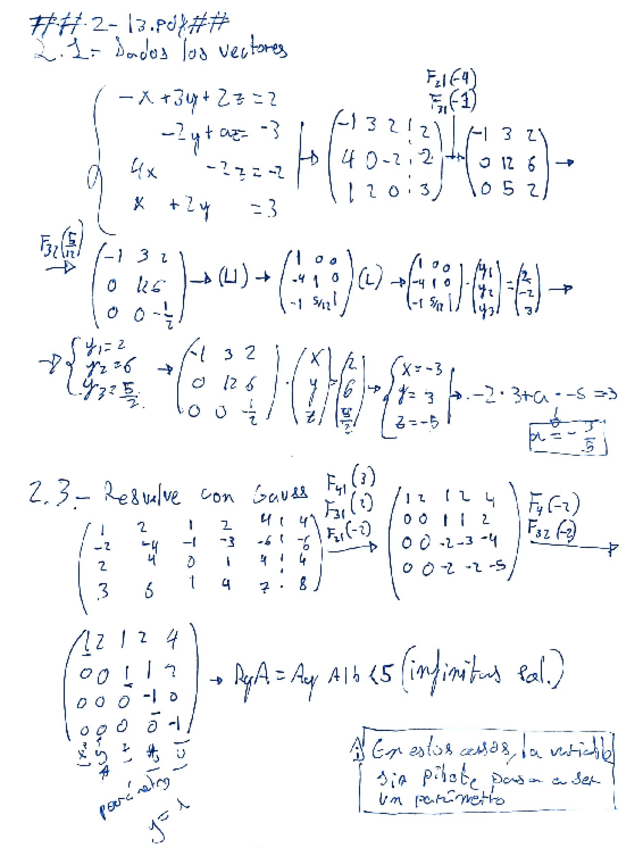 ##.2-13.pdf##
2.1.- Dados los vectores
-x+3y+2z=2
-2y+az=-3
4x -2z=-2
x +2y =3
→ (-1 3 2 | 2
4 0 -2 : -2
1 2 0 : 3)
F21(-4)
F31(-1)
→ (-1 3 2
0 12 6
0 5 2) →
F32(5/12) → (-1 3 2
0 12 6
0 0 -1/2) → (U) → (1 0 0
-4 1 0
-1 5/12 1) (L) → (1 0 0
-4 1 0
-1 5/12 1) · (y1
y2
y3) = (2
-2
3) →
→ { y1=2
y2=6
y3=5/2 → (-1 3 2
0 12 6
0 0 1/2) · (x
y
z) = (2
6
5/2) → { x=-3
y=3
z=-5 → -2·3+a·-5=3
a=-3/5
2.3.- Resuelve con Gauss
F41(3)
F31(2)
F21(-2)
(1 2 1 2 4 : 4
-2 -4 -1 -3 -6 : -6
2 4 0 1 4 : 4
3 6 1 4 7 : 8) → (1 2 1 2 4
0 0 1 1 2
0 0 -2 -3 -4
0 0 -2 -2 -5)
F4(-2)
F32(-2) →
(1 2 1 2 4
0 0 1 1 2
0 0 0 -1 0
0 0 0 0 -1) → RgA = Ay A|b < 5 (infinitas sol.)
parámetro
y=λ
En estos casos, la variable
sin pibote pasa a ser
un parámetro